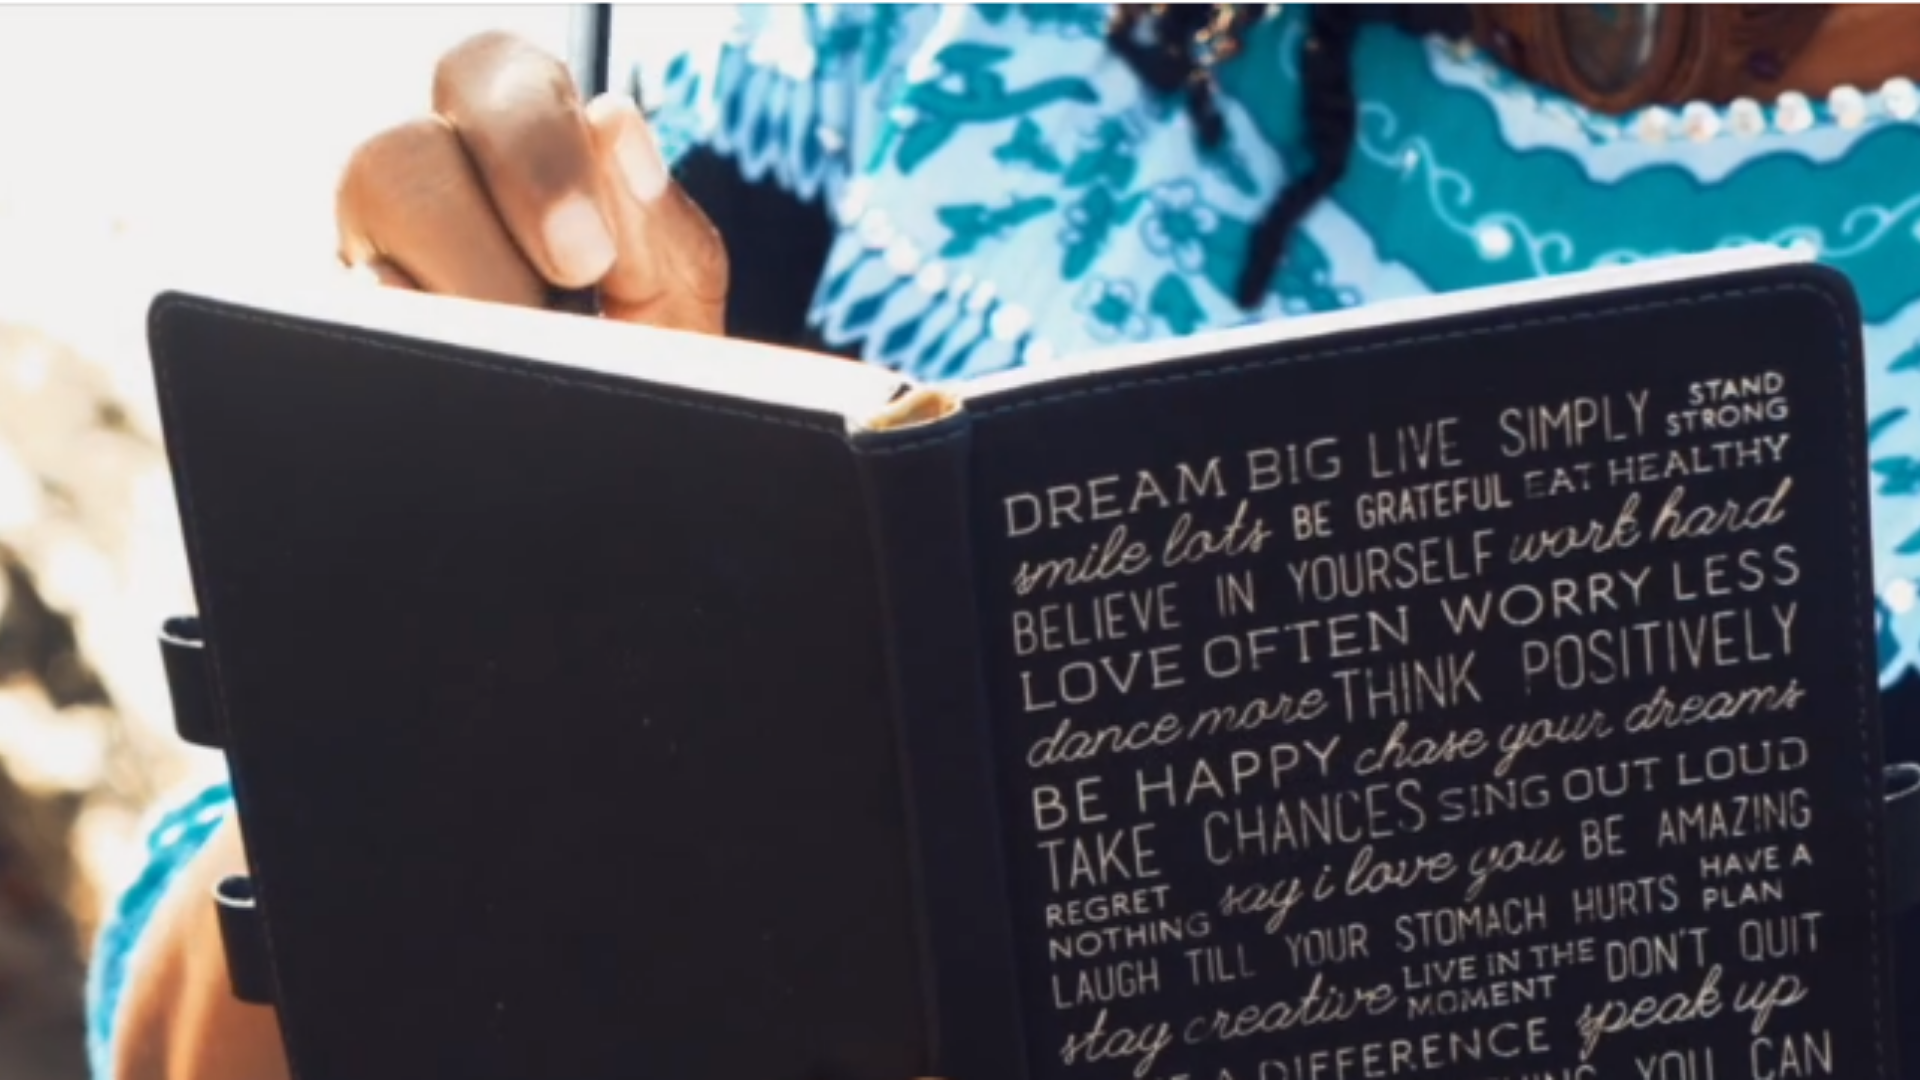 DREAM BIG LIVE SIMPLY STAND STRONG
smile lots BE GRATEFUL EAT HEALTHY
BELIEVE IN YOURSELF work hard
LOVE OFTEN WORRY LESS
dance more THINK POSITIVELY
BE HAPPY chase your dreams
TAKE CHANCES SING OUT LOUD
REGRET NOTHING say i love you BE AMAZING
LAUGH TILL YOUR STOMACH HURTS HAVE A PLAN
stay creative LIVE IN THE MOMENT DON'T QUIT
A DIFFERENCE speak up
YOU CAN